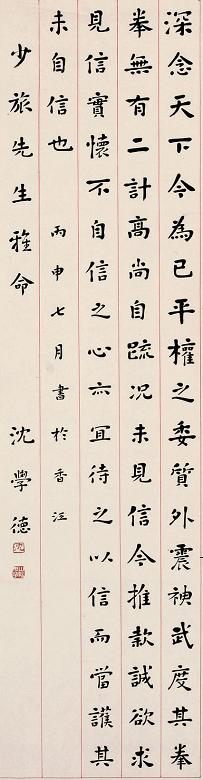 深念天下今為已平權之委質外震神武度其拳
拳無有二計高尚自踈况未見信今推款誠欲求
見信實懷不自信之心亦宜待之以信而當護其
未自信也 丙申七月書於香江
少旅先生雅命 沈學德